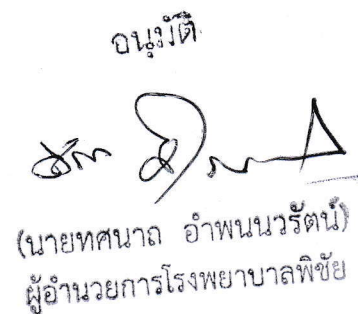 อนุมัติ
(นายทศนาถ อำพนนวรัตน์)
ผู้อำนวยการโรงพยาบาลพิชัย